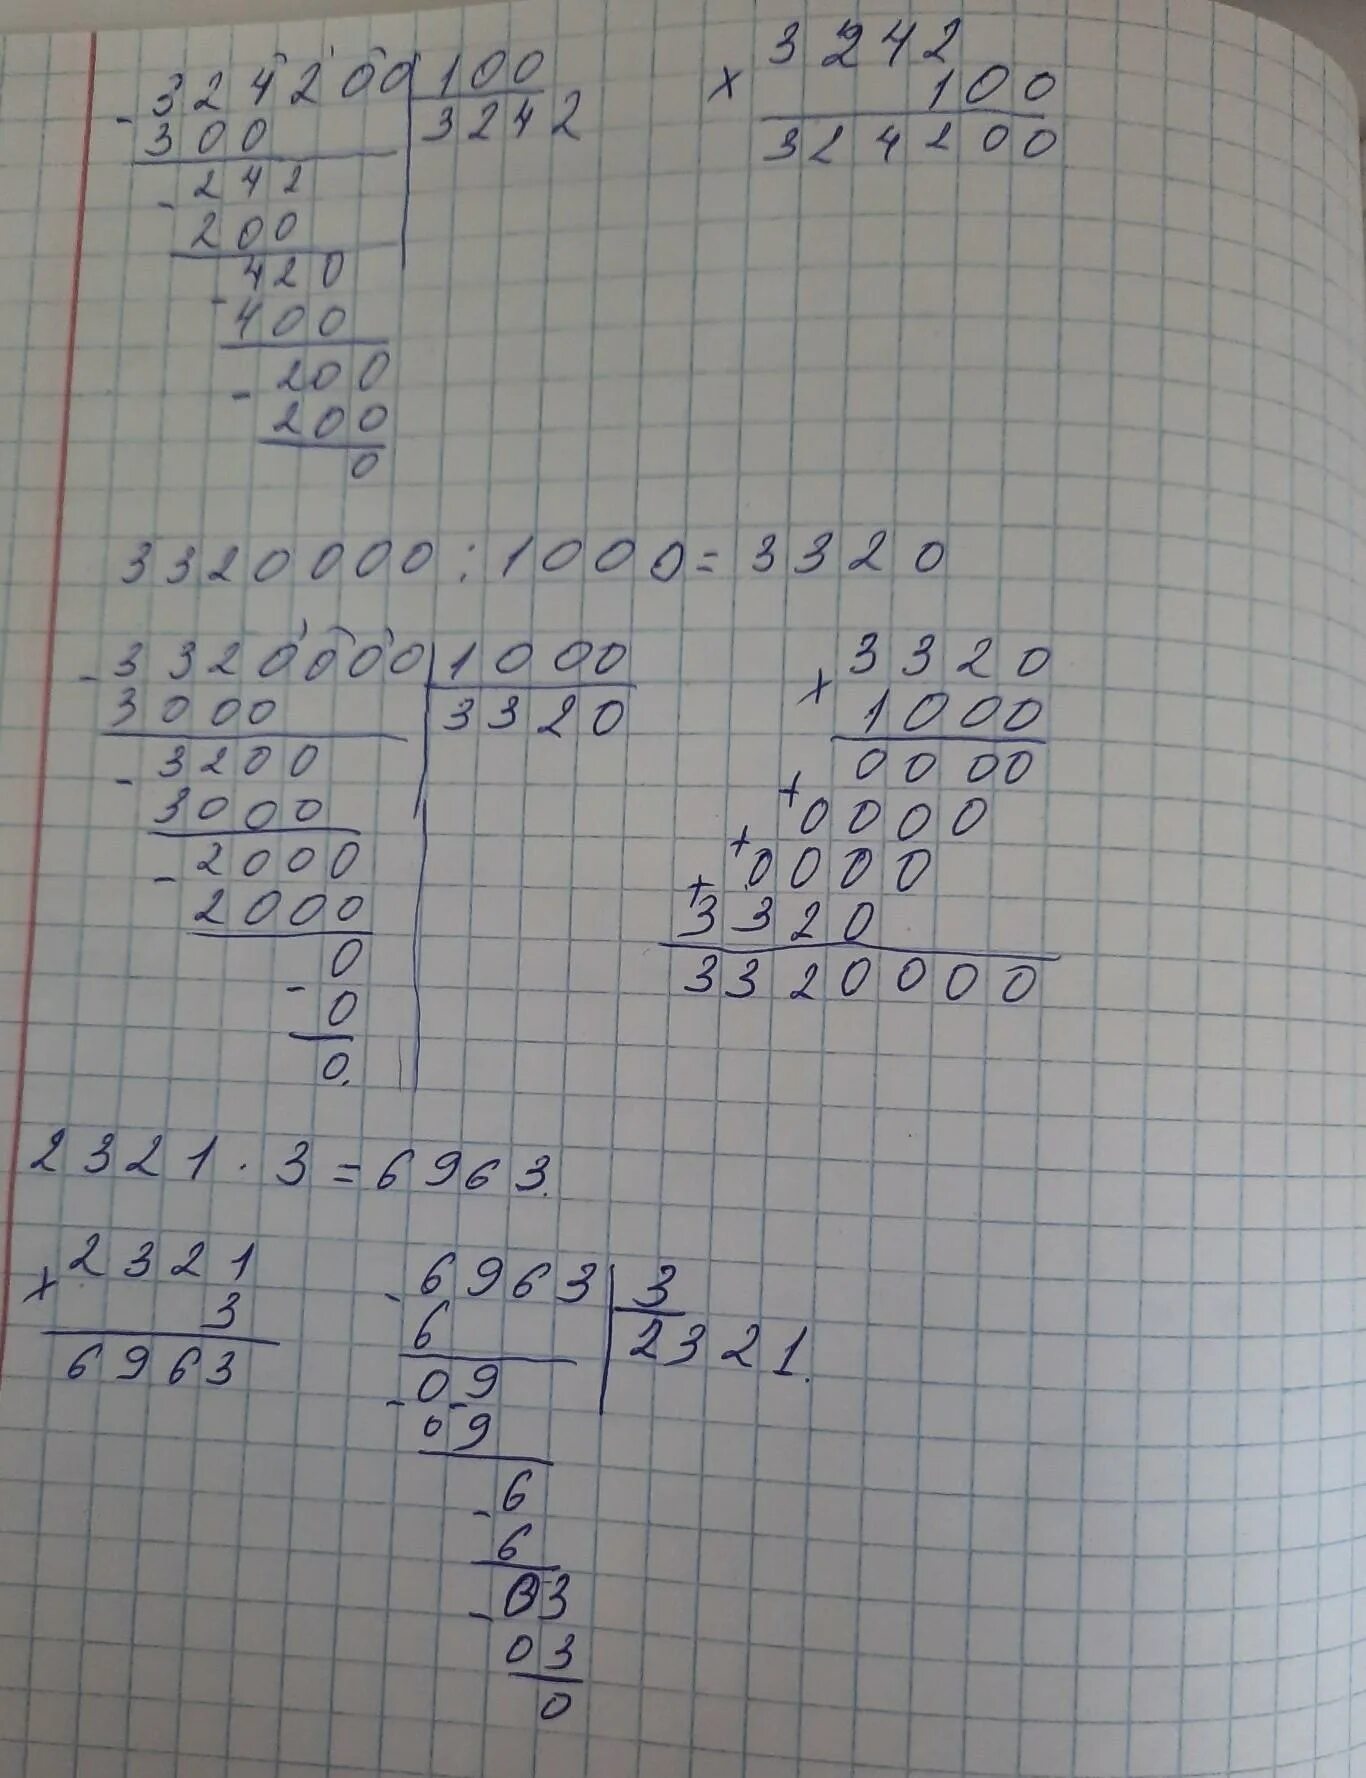 - 324200 | 100
300 | 3242
- 242
200
- 420
400
- 200
200
0
x 3242
100
324200
3320000 : 1000 = 3320
- 3320000 | 1000
3000 | 3320
- 3200
3000
- 2000
2000
0
- 0
0.
x 3320
1000
0000
+ 0000
+ 0000
+ 3320
3320000
2321 · 3 = 6963.
x 2321
3
6963
- 6963 | 3
6 | 2321.
- 09
09
- 6
6
- 03
03
0